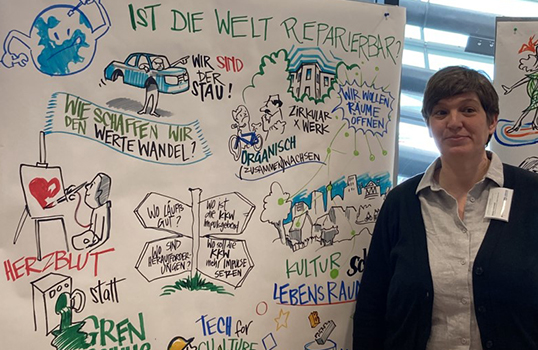 IST DIE WELT REPARIERBAR?
WIR SIND
DER
STAU!
WIE SCHAFFEN WIR
DEN WERTEWANDEL?
ZIRKULAR
X WERK
WIR WOLLEN
RÄUME
ÖFFNEN
ORGANISCH
ZUSAMMEN/WACHSEN
WO LÄUFTS
GUT?
WO IST
DIE KKW
IMPULSGEBERIN?
WO SIND
HERAUSFORDER
UNGEN?
WO SOLL DIE
KKW
MEHR IMPULSE
SETZEN
HERZBLUT
statt
GREN
KULTUR
LEBENSRAUM
TECH for